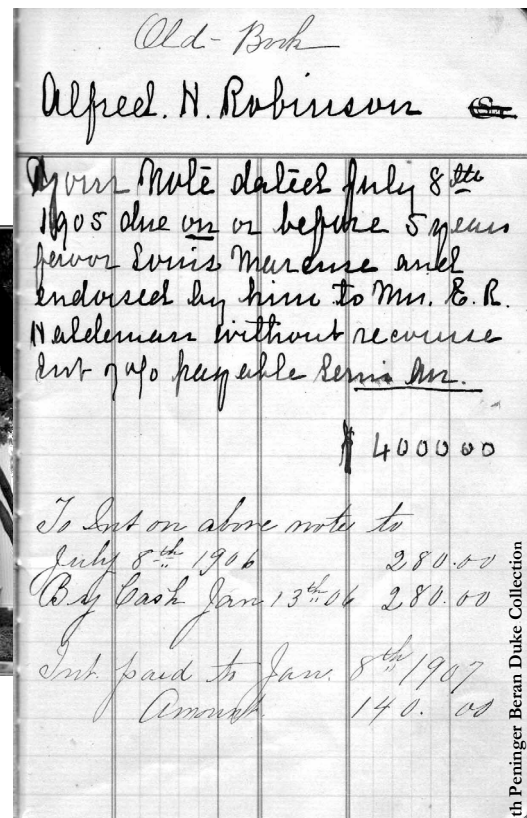 Old-Book
Alfred. H. Robinson
Your Note dated July 8th
1905 due on or before 5 years
favor Louis Marcuse and
endorsed by him to Mrs. E. R.
Haldeman without recourse
Int 7% payable Semi An.
$ 4000 00
To Int on above note to
July 8th 1906 280.00
By Cash Jan 13th 06 280.00
Int. paid to Jan. 8th 1907
Amount 140. 00
th Peninger Beran Duke Collection